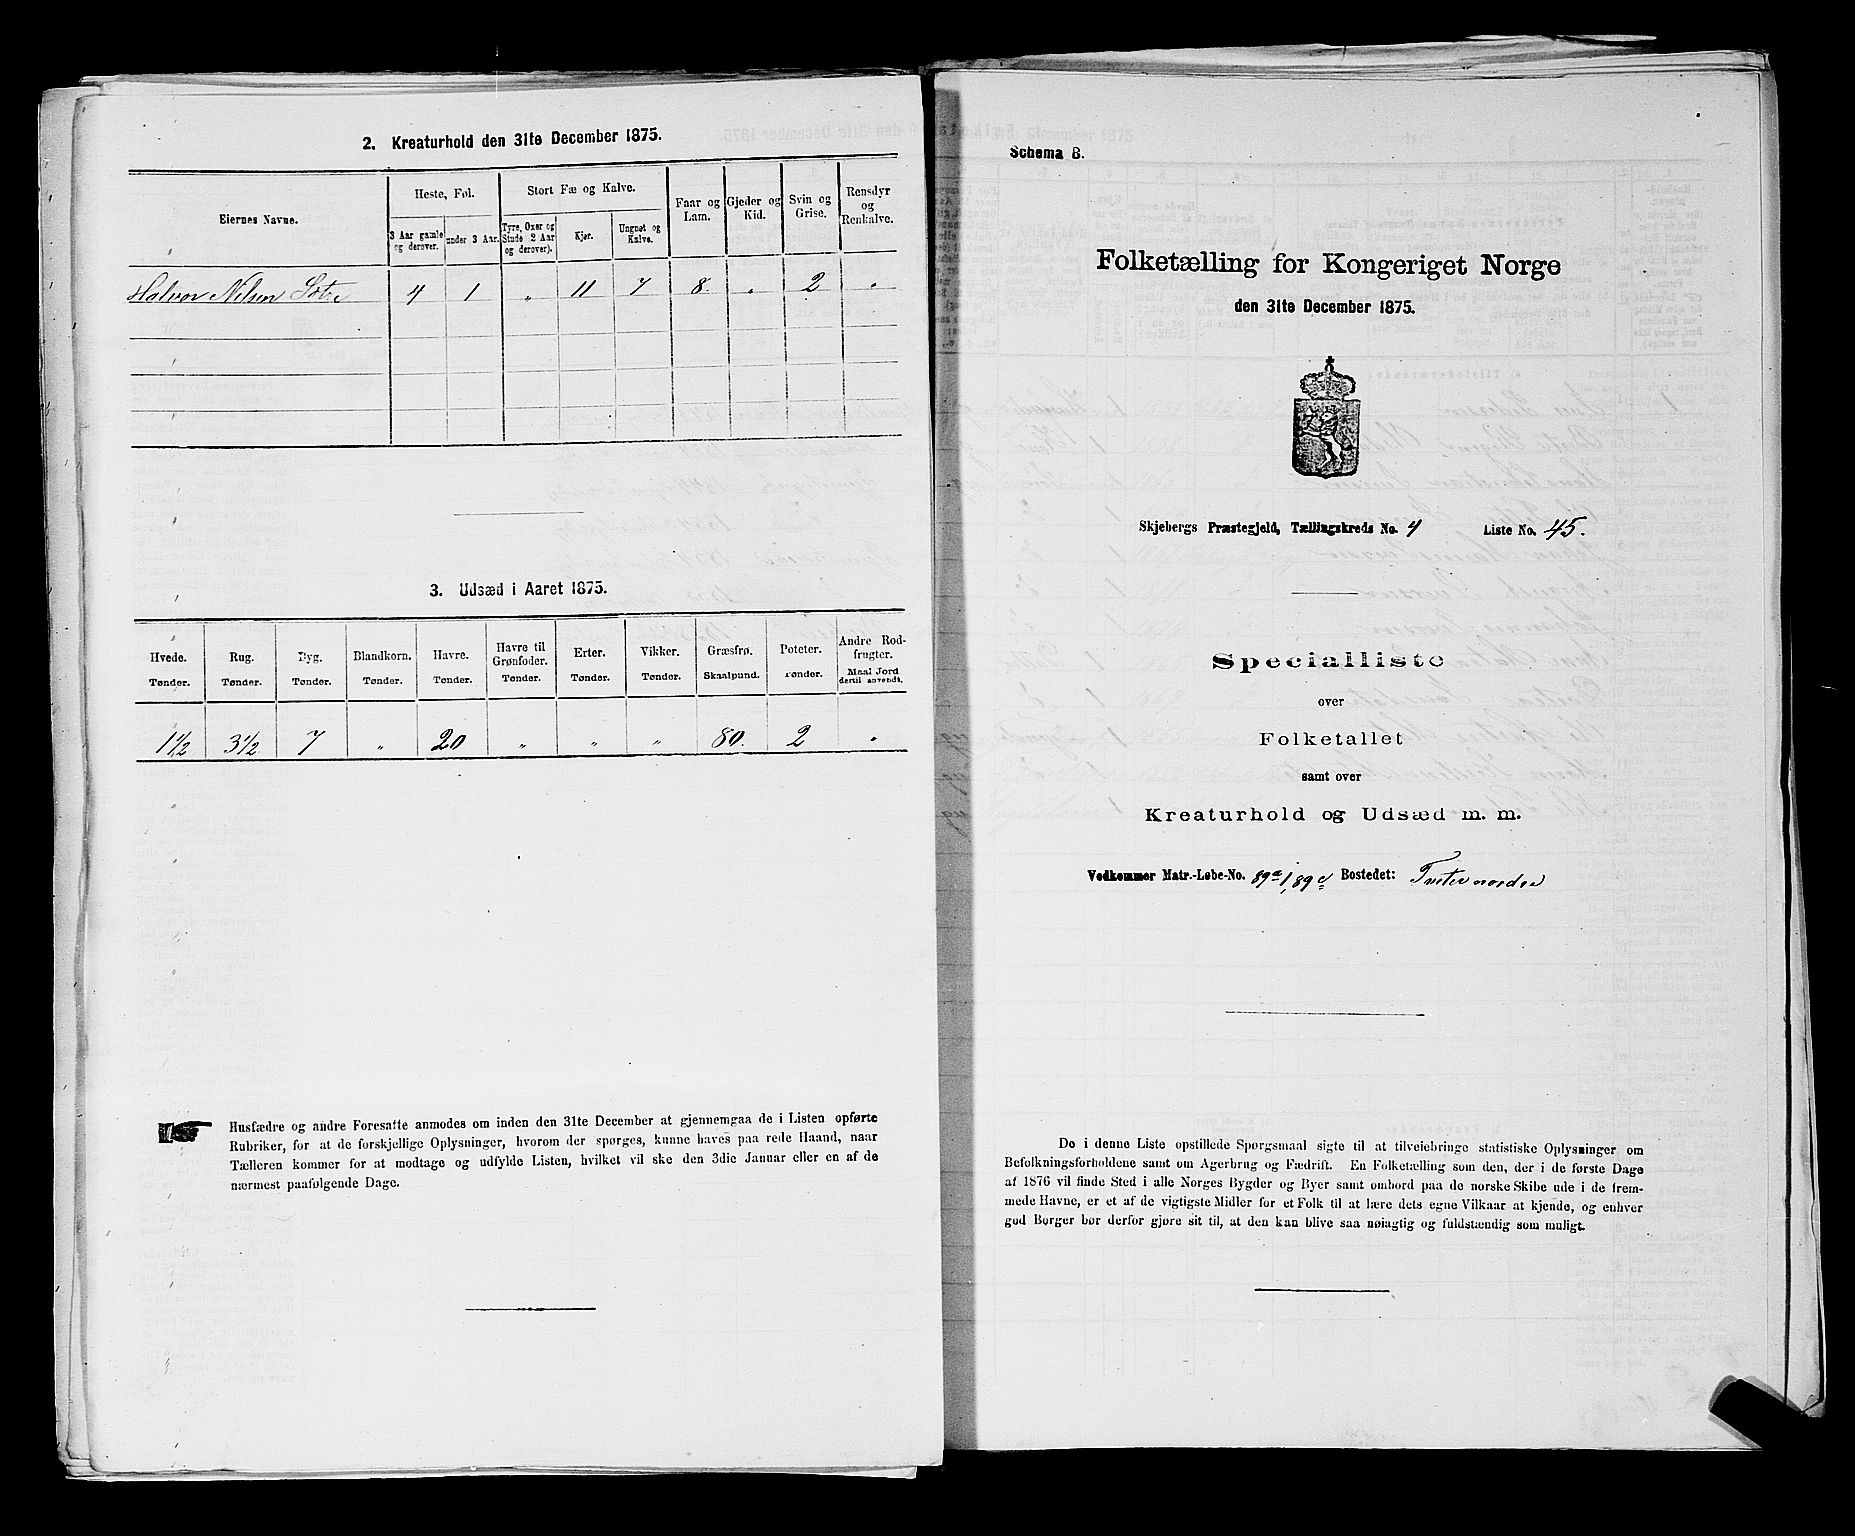 2. Kreaturhold den 31te December 1875.
Eiernes Navne. Heste, Føl. Stort Fæ og Kalve. Faar og Lam. Gjeder og Kid. Svin og Grise. Rensdyr og Renkalve.
3 Aar gamle og derover. under 3 Aar. Tyre, Oxer og Stude 2 Aar og derover). Kjør. Ungnøt og Kalve.
Halvor Nilsen 4 1 „ 11 7 8. „ 2 „
3. Udsæd i Aaret 1875.
Hvede. Rug. Byg. Blandkorn. Havre. Havre til Grønfoder. Erter. Vikker. Græsfrø. Poteter. Andre Rodfrugter.
Tønder. Tønder. Tønder. Tønder. Tønder. Tønder. Tønder. Tønder. Skaalpund. Tønder. Maal Jord dertil anvendt.
1½ 3½ 7 „ 20 „ „ „ 80. 2 „
Husfædre og andre Foresatte anmodes om inden den 31te December at gjennemgaa de i Listen opførte
Rubriker, for at de forskjellige Oplysninger, hvorom der spørges, kunne haves paa rede Haand, naar
Tælleren kommer for at modtage og udfylde Listen, hvilket vil ske den 3die Januar eller en af de
nærmest paafølgende Dage.
Schema B.
Folketælling for Kongeriget Norge
den 31te December 1875.
Skjebergs Præstegjeld, Tællingskreds No. 4 Liste No. 45.
Specialliste
over
Folketallet
samt over
Kreaturhold og Udsæd m. m.
Vedkommer Matr.-Løbe-No. 89a1, 89c Bostedet: Tveter nordre
De i denne Liste opstillede Spørgsmaal sigte til at tilveiebringe statistiske Oplysninger om
Befolkningsforholdene samt om Agerbrug og Fædrift. En Folketælling som den, der i de første Dage
af 1876 vil finde Sted i alle Norges Bygder og Byer samt ombord paa de norske Skibe ude i de frem-
mede Havne, er et af de vigtigste Midler for et Folk til at lære dets egne Vilkaar at kjende, og enhver
god Borger bør derfor gjøre sit til, at den kan blive saa nøiagtig og fuldstændig som muligt.